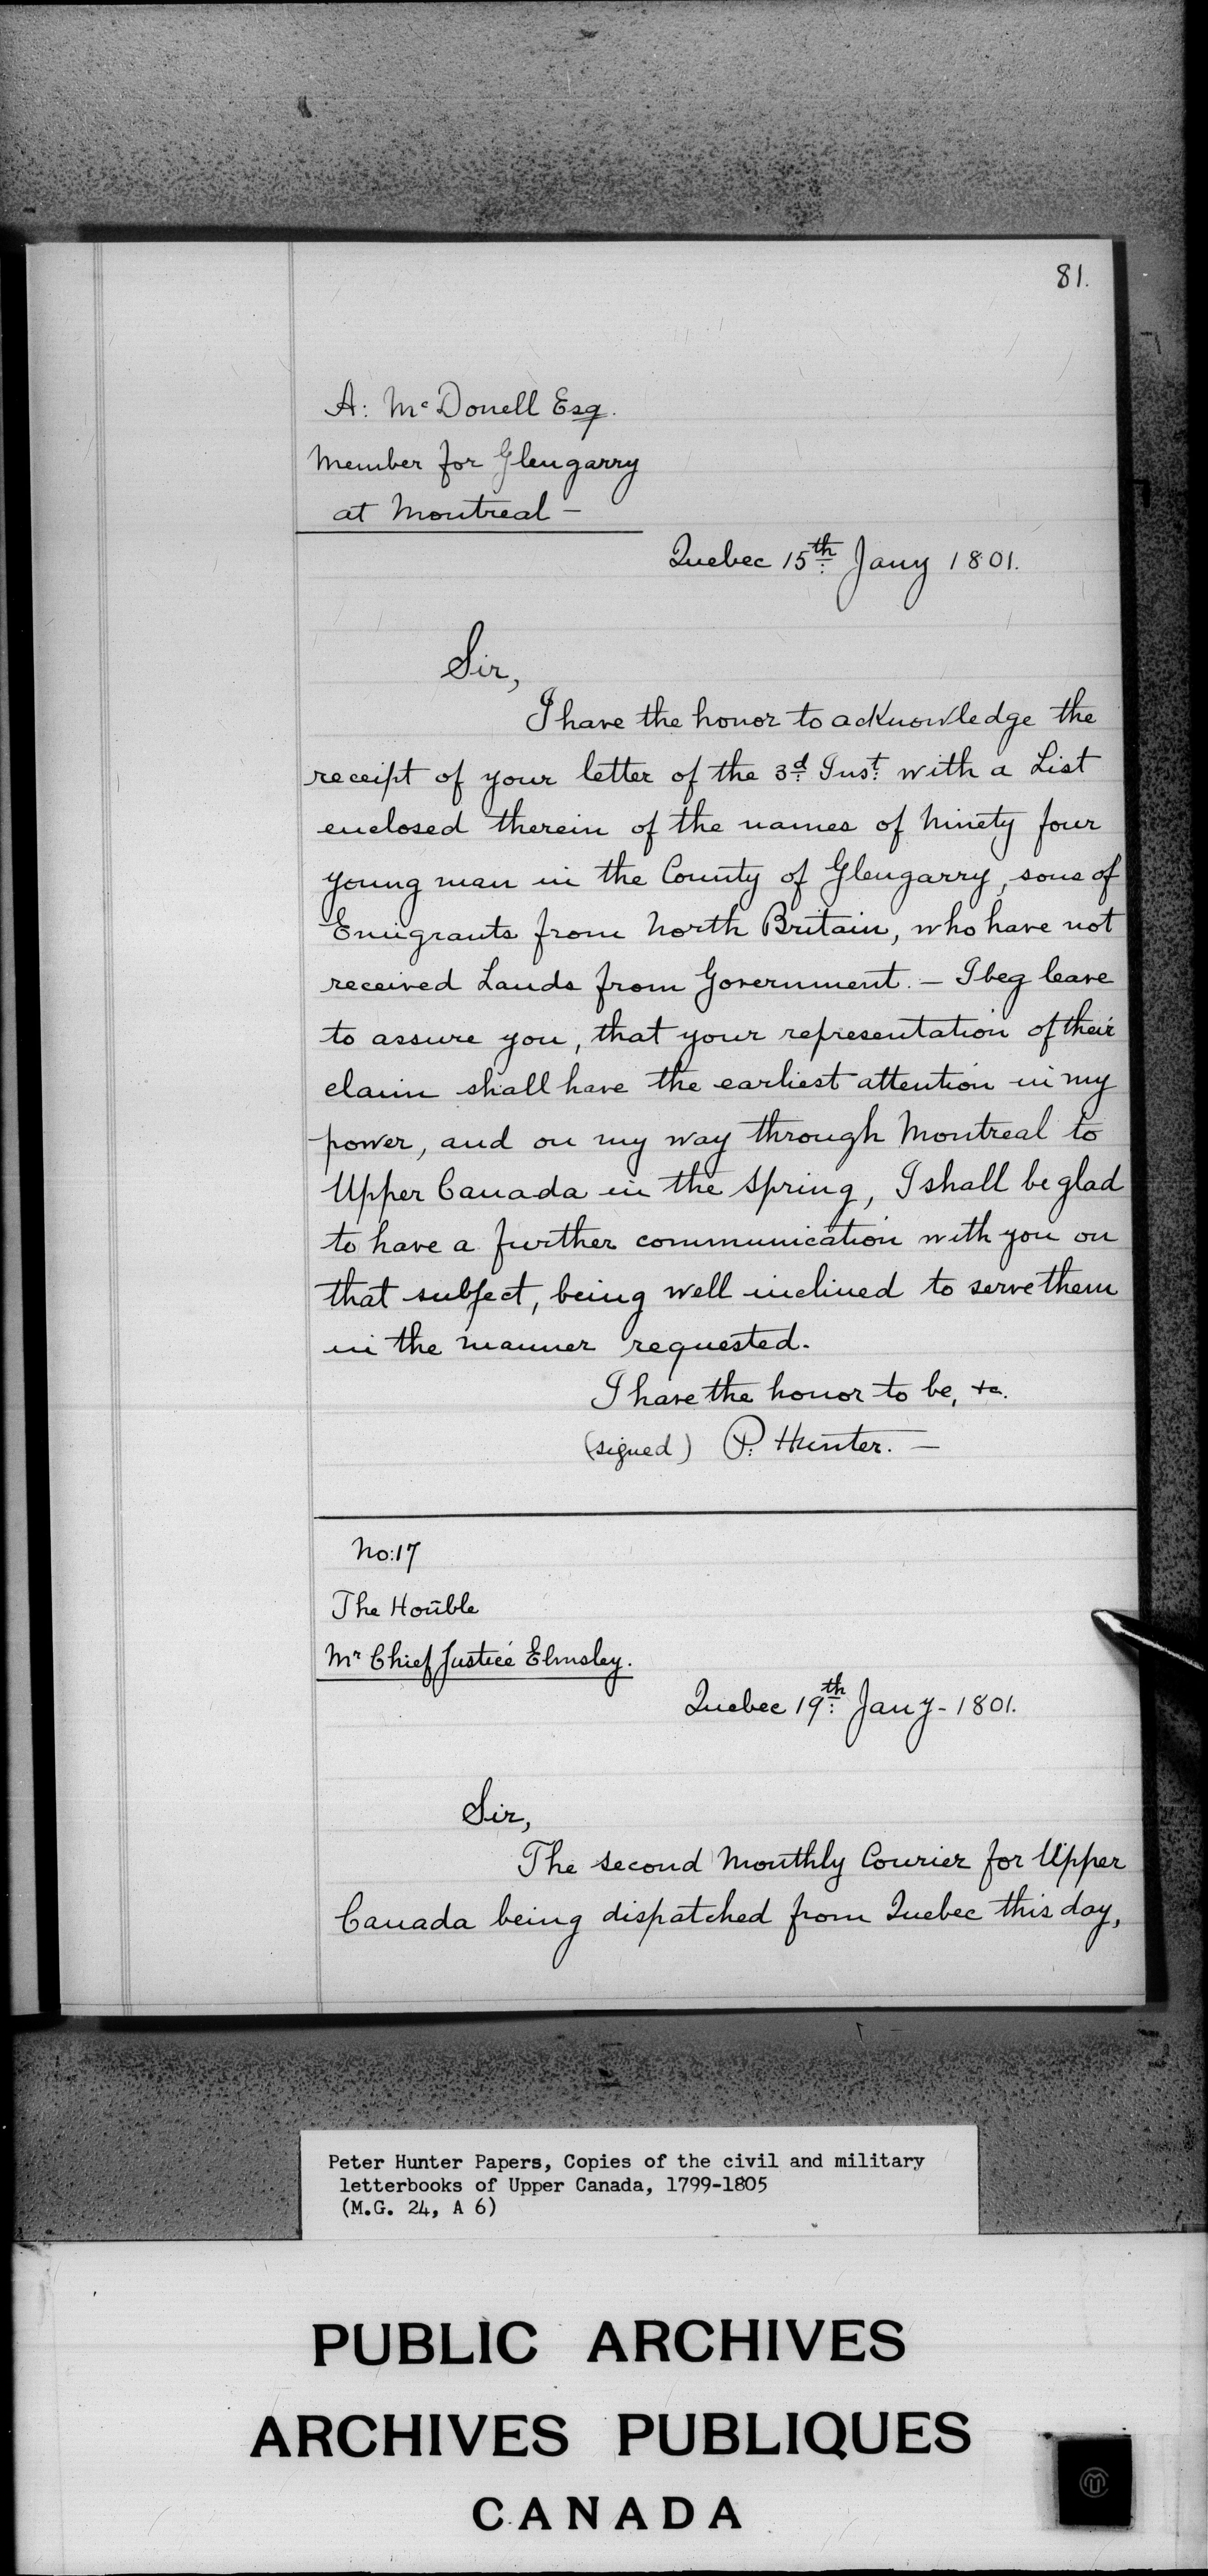 81.
A: McDonell Esq.
Member for Glengarry
at Montreal -
Quebec 15th Jany 1801.
Sir,
I have the honor to acknowledge the
receipt of your letter of the 3d Inst. with a List
enclosed therein of the names of Ninety four
young man in the County of Glengarry, sons of
Emigrants from North Britain, who have not
received Lands from Government. - I beg leave
to assure you, that your representation of their
claim shall have the earliest attention in my
power, and on my way through Montreal to
Upper Canada in the Spring, I shall be glad
to have a further communication with you on
that subject, being well inclined to serve them
in the manner requested.
I have the honor to be, &c.
(signed) P. Hunter. -
No: 17
The Honble
Mr Chief Justice Elmsley.
Quebec 19th Jany - 1801.
Sir,
The second Monthly Courier for Upper
Canada being dispatched from Quebec this day,
Peter Hunter Papers, Copies of the civil and military
letterbooks of Upper Canada, 1799-1805
(M.G. 24, A 6)
PUBLIC ARCHIVES
ARCHIVES PUBLIQUES
CANADA